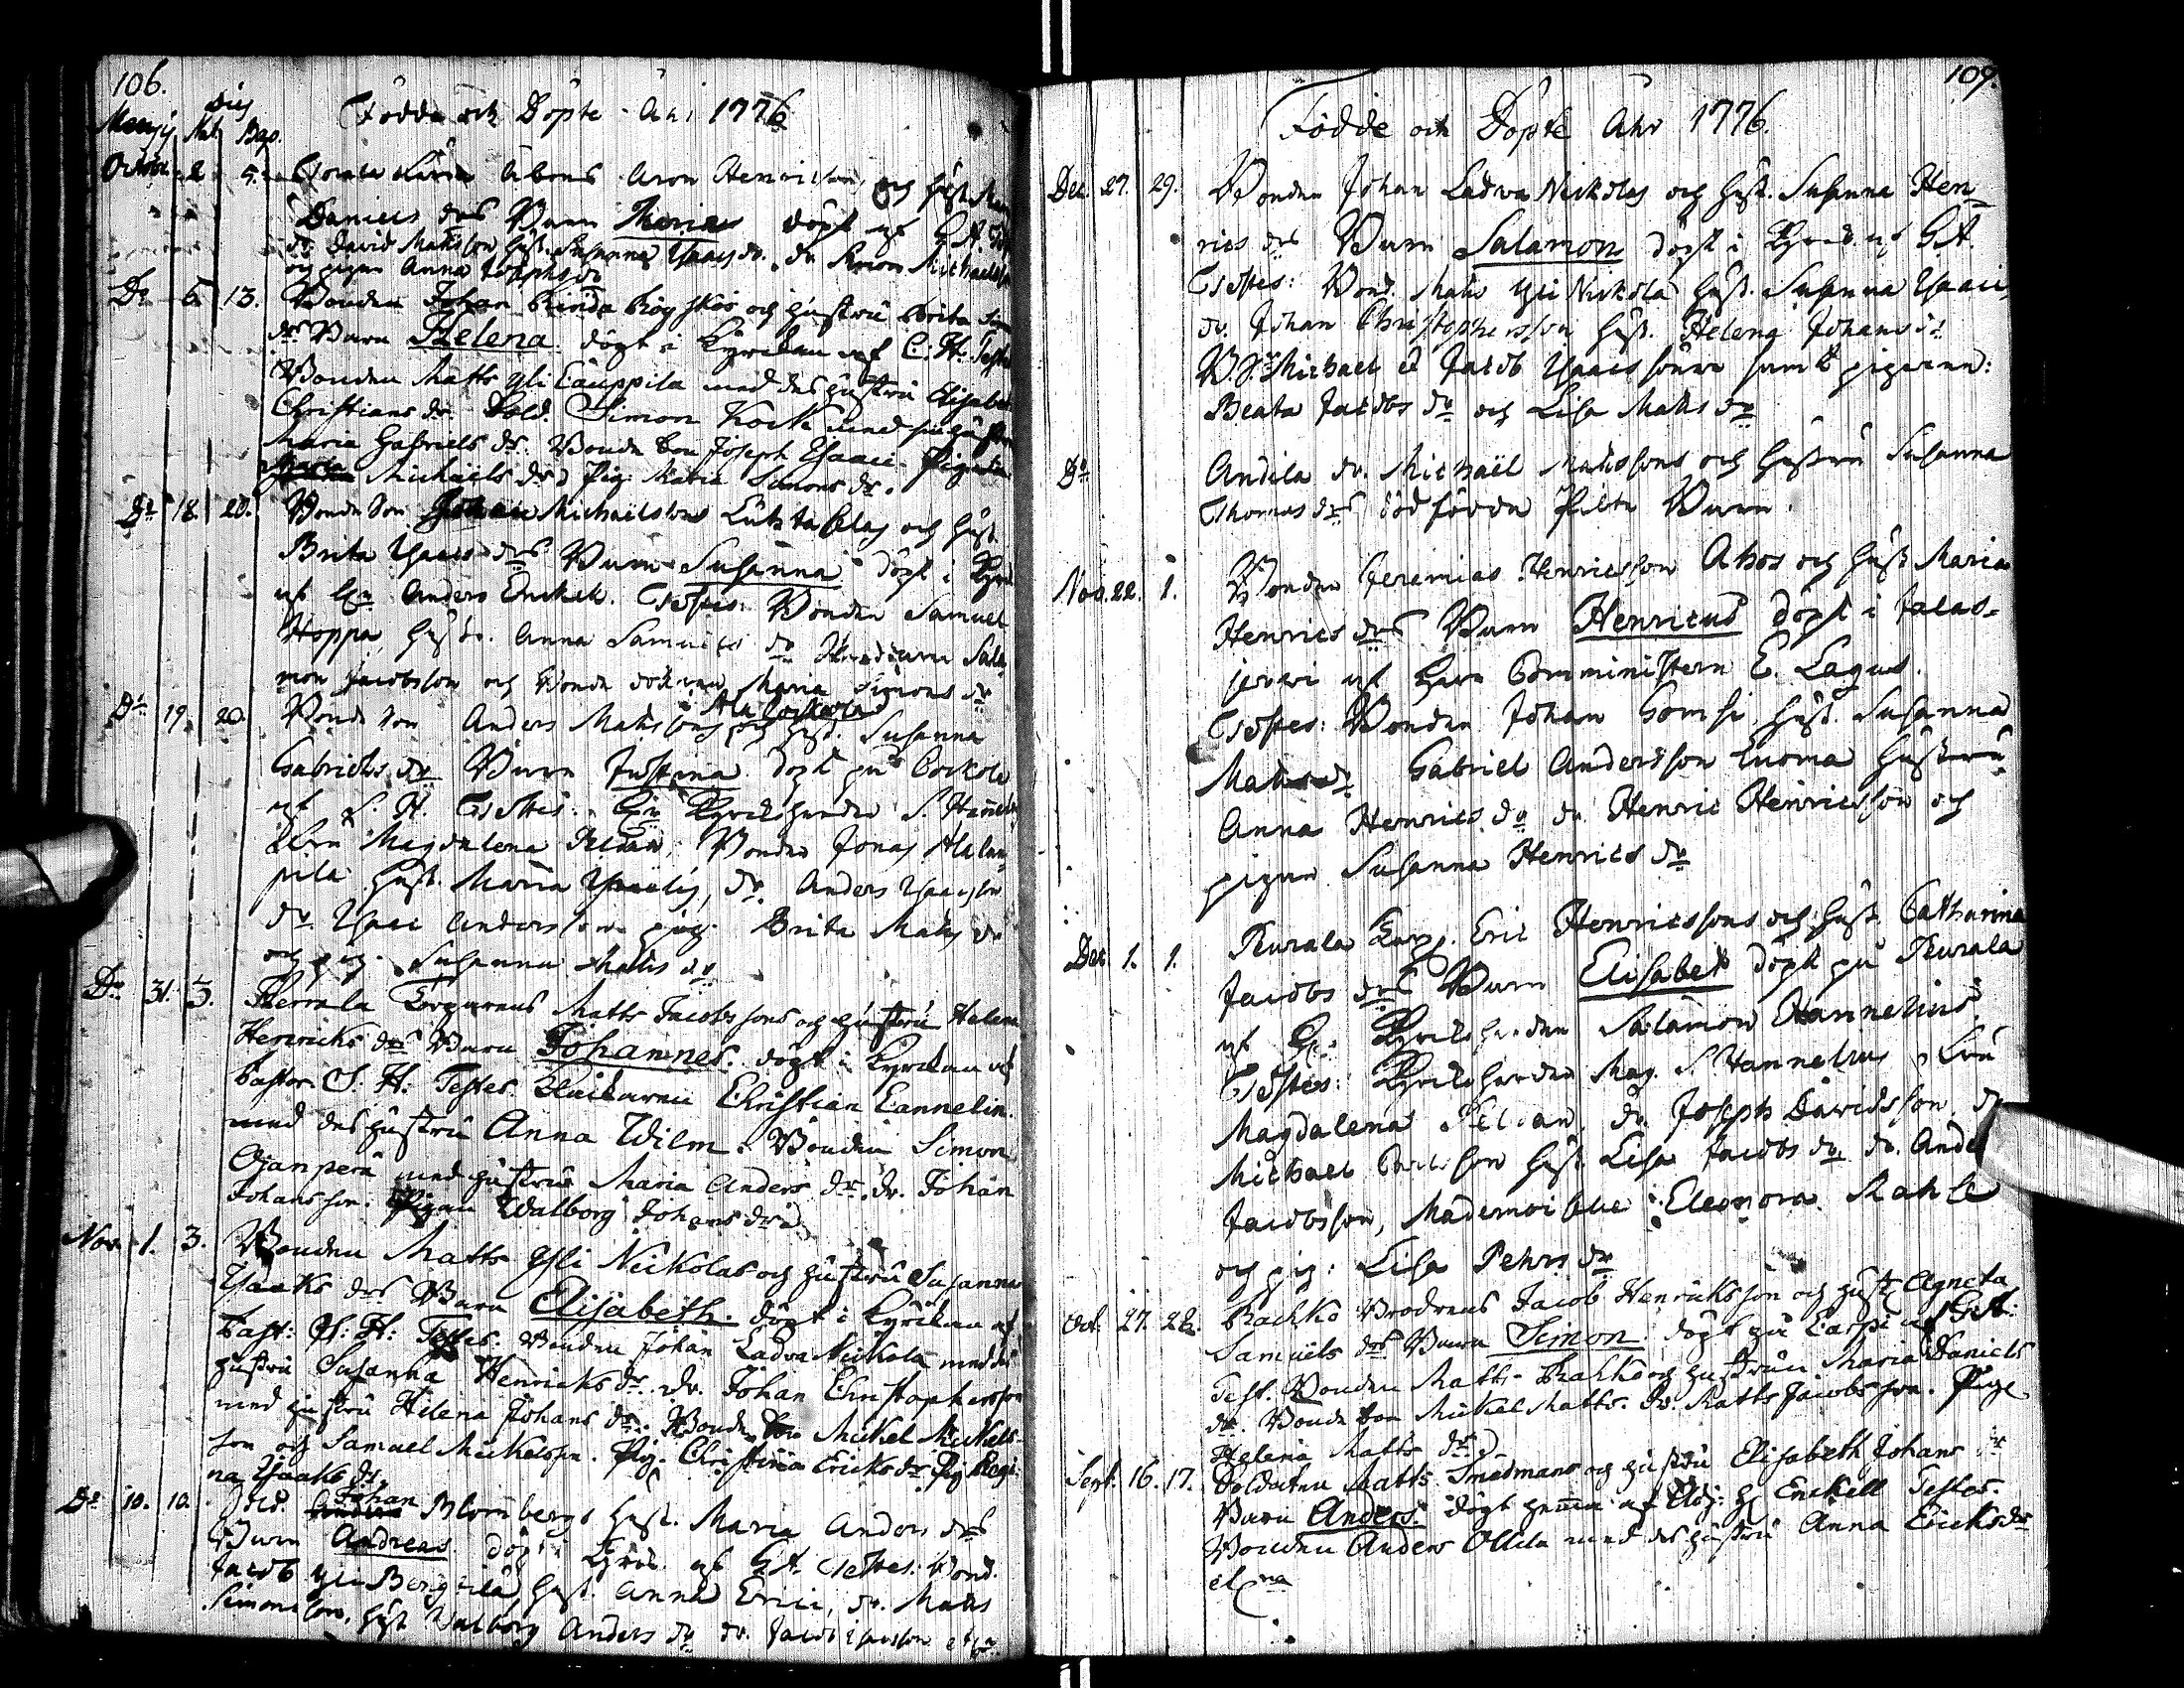 106.
Födde och Döpte Åhr 1776
Dies
Mensis Nat. Bap.
Octobr 2 5. Aron Henricsons och hust.
Daniels drs Barn Maria döpt af G A
dr. David Mattsson hust. Susanna Isaacs dr. dr. Simon Michaelsson
och pigan Anna Josephs dr
Do 6. 13. Bonden Johan och hustru Brita
dr Barn Helena döpt i Kyrckan af C. H. Testes
Bonden Matts Yli Cauppila med des hustru Elisabet
Christians dr. Sold. Simon Kock med sin hustru
Maria Gabriels dr. Bonde Son Joseph Isaaci. Pigan
Maria Michaels dr Pig. Maria Simons dr.
Do 18. 20. Bonde Son Johan Michaelssons Luhtasclas och hust
Brita Isaacs drs Barn Susanna döpt i Kyrck
af Hr Anders Enckel. Testes: Bonden Samuel
Hoppa, hustr. Anna Samuels dr Sala
mon Jacobsson och Maria Simons dr
Do 19. 20. Bonde Son Anders Matssons och hust. Susanna
Gabriels dr Barn Justina döpt på Cockola
af S. H. Testes: Hr Kyrckoherden S. Hannel
Fru Magdalena Peldan, Bonden Jonas Alalam
pila hust. Maria dr. Anders Isaacson
dr. Isaac Andersson pig. Brita Mats dr
och pig. Susanna Matts dr
Do 31. 3. Herrala Torparens Matts Jacobssons och hustru Helena
Henricks drs Barn Johannes döpt i Kyrckan af
Pastor S. H. Testes. Christian Cannelin
med des hustru Anna Wilm. Bonden Simon
Ojanperä med hustru Maria Anders dr. dr. Johan
Johansson. Pigan Walborg Johans dr
Nov. 1. 3. Bonden Matts Yli Nickolas och hustru Susanna
Isaaks drs Barn Elisabeth döpt i Kyrckan af
Past: S: H: Testes. Bonden Johan Ladva Nickola med des
hustru Susanna Henricks dr. dr. Johan Christophersson
med hustru Helena Johans dr. Bonde Son Mickel Mickels
son och Samuel Mickelsson. Pig. Christina Ericks dr Pig Regi
na Isaaks dr
Do 10. 10. Sold. Johan Blombergs hust. Maria Anders drs
Barn Andreas döpt i Kyrck. af G A Testes: Bond.
Jacob Yli Bergvila hust. Anna Erici, dr. Matts
Simonsson, hust Walborg Anders dr dr. Jacob Isacsson etc
109.
Födde och Döpte Åhr 1776.
Dec. 27. 29. Bonden Johan Ladva Nickolas och hust. Susanna Hen
rics drs Barn Salamon döpt i Kyrck. af G A
Testes: Bond. Mats Yli Nickola hust. Susanna Isaaci,
dr. Johan Christophersson hust. Helena Johans dr
Michael et Jacob Isaacs söner samt pigorna:
Beata Jacobs dr och Lisa Mats dr
Do Andila dr. Michaël Matssons och hustru Susanna
Thomas drs dödfödda Piltn Barn.
Nov. 22. 1. Bonden Jeremias Henricsson Ahos och hust Maria
Henrics drs Barn Henricus döpt i Jalas-
jerwi af Herr Comministern E. Lagus.
Testes: Bonden Johan Gomsi, hust. Susanna
Mats dr Gabriel Andersson Luoma hustru
Anna Henrics dr dr Henric Henricsson och
pigan Susanna Henrics dr
Dec 1. 1. Kurala Torp. Eric Henricssons och hust. Catharina
Jacobs drs Barn Elisabet döpt på Kurala
af Hr Kyrckoherden Salamon Hannelius.
Testes: Kyrckoherden Mag. S Hannelius Fru
Magdalena Peldan, dr Joseph Davidsson, dr
Michael hust. Lisa Jacobs dr dr. Ande
Jacobsson, Mademoiselle Eleonora Mahle
och pig: Lisa Pehrs dr
Oct. 27. 28. Rachko Brodrens Jacob Henricksson och hust Agneta
Samuels drs Barn Simon döpt på af G A:
Test. Bonden Matts Rahko och hustrun Maria Daniels
dr. Bonde Son Mickel Matts. dr. Matts Jacobsson. Pige
Helena Matts dr
Sept. 16. 17. Soldaten Matts Smedmans och hustru Elisabeth Johans dr
Barn Anders döpt hema af Adj: H Enckell Testes.
Bonden Anders Ollila med des hustru Anna Ericks dr
etc